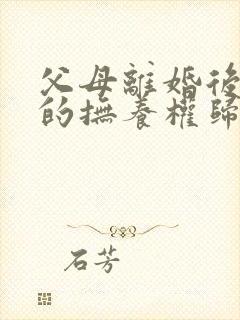 父母離婚後
的撫養權歸
石芳